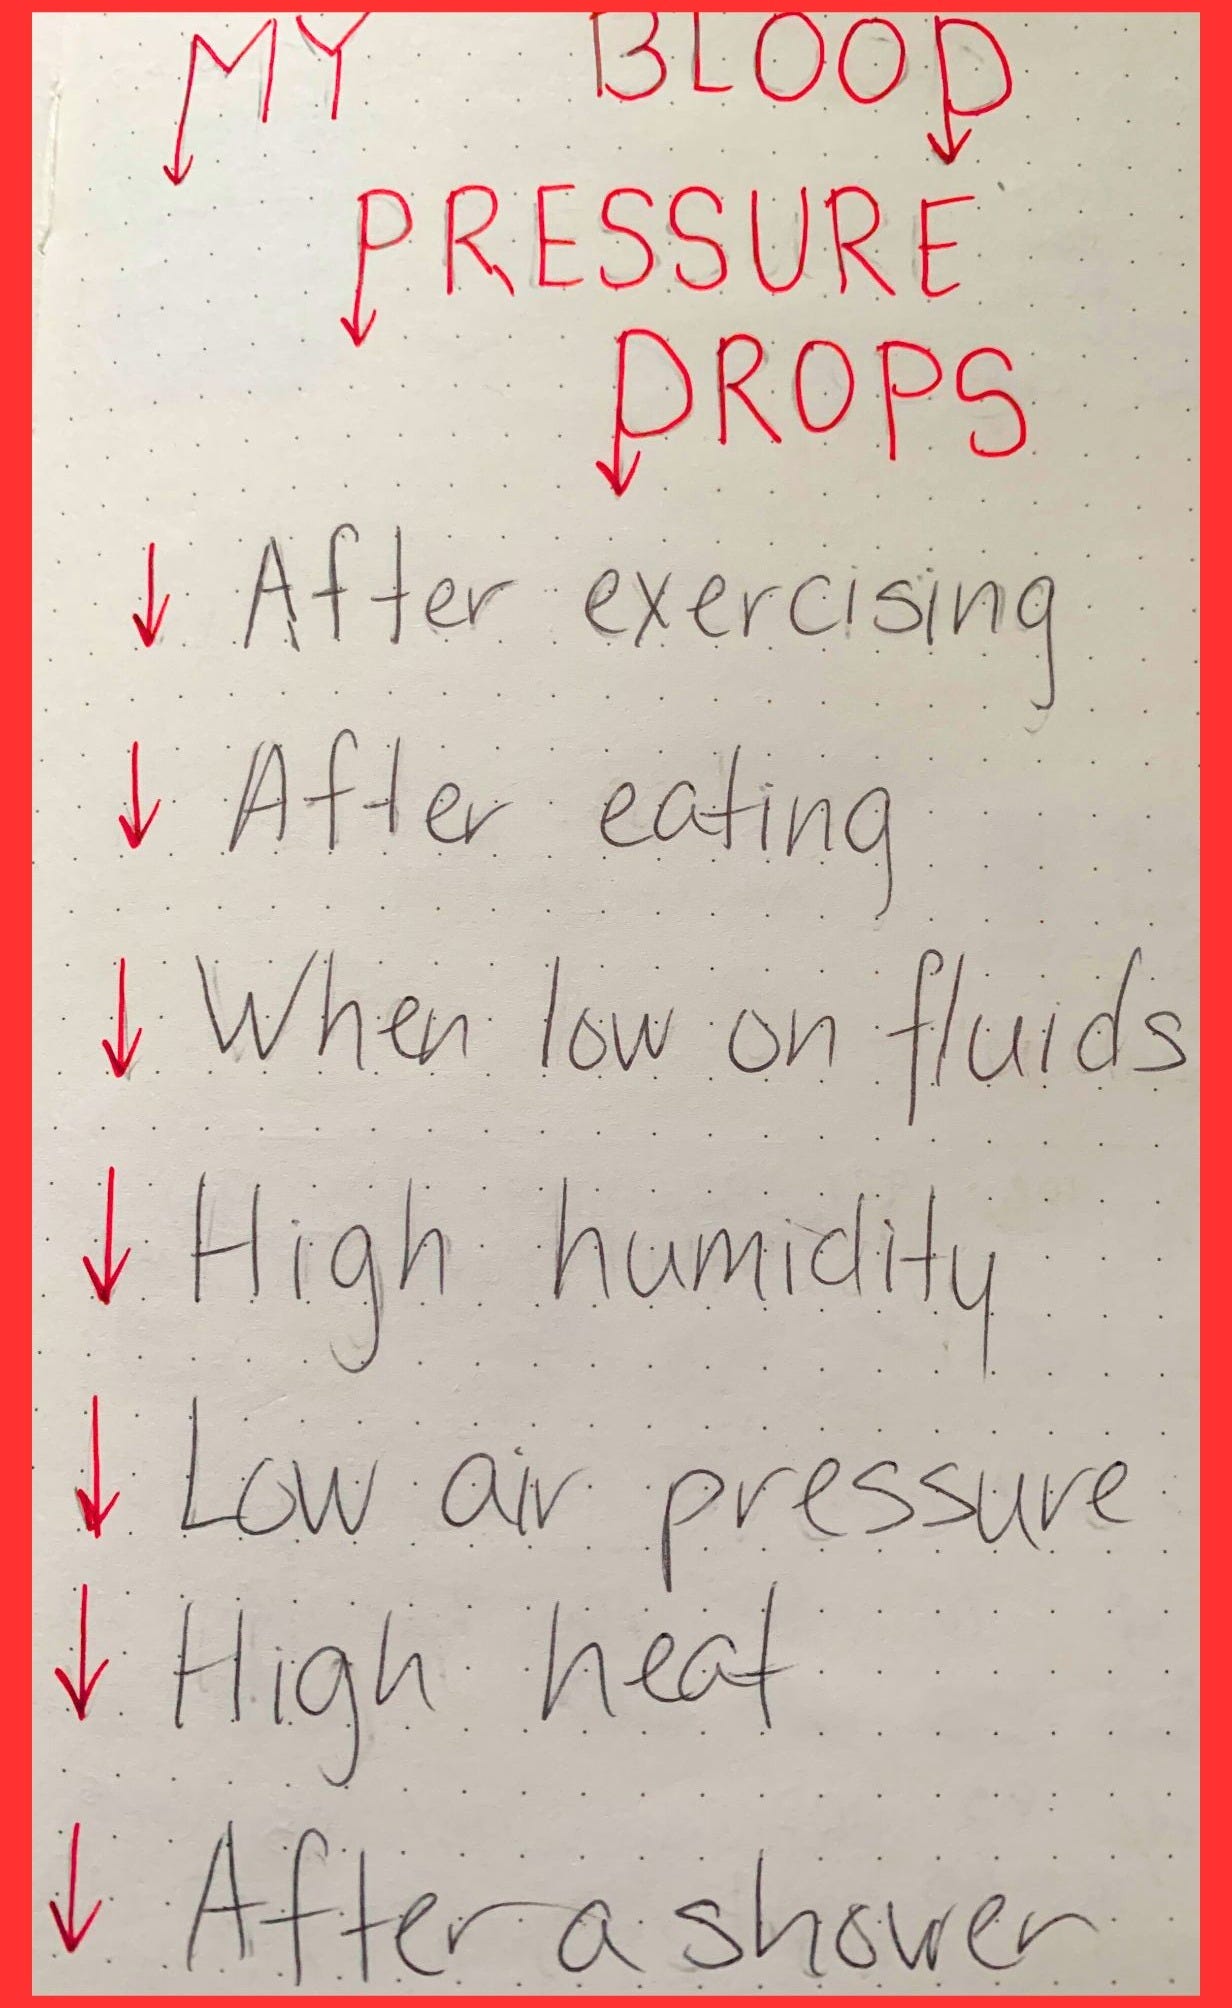 MY BLOOD
PRESSURE
DROPS
↓ After exercising
↓ After eating
↓ When low on fluids
↓ High humidity
↓ Low air pressure
↓ High heat
↓ After a shower